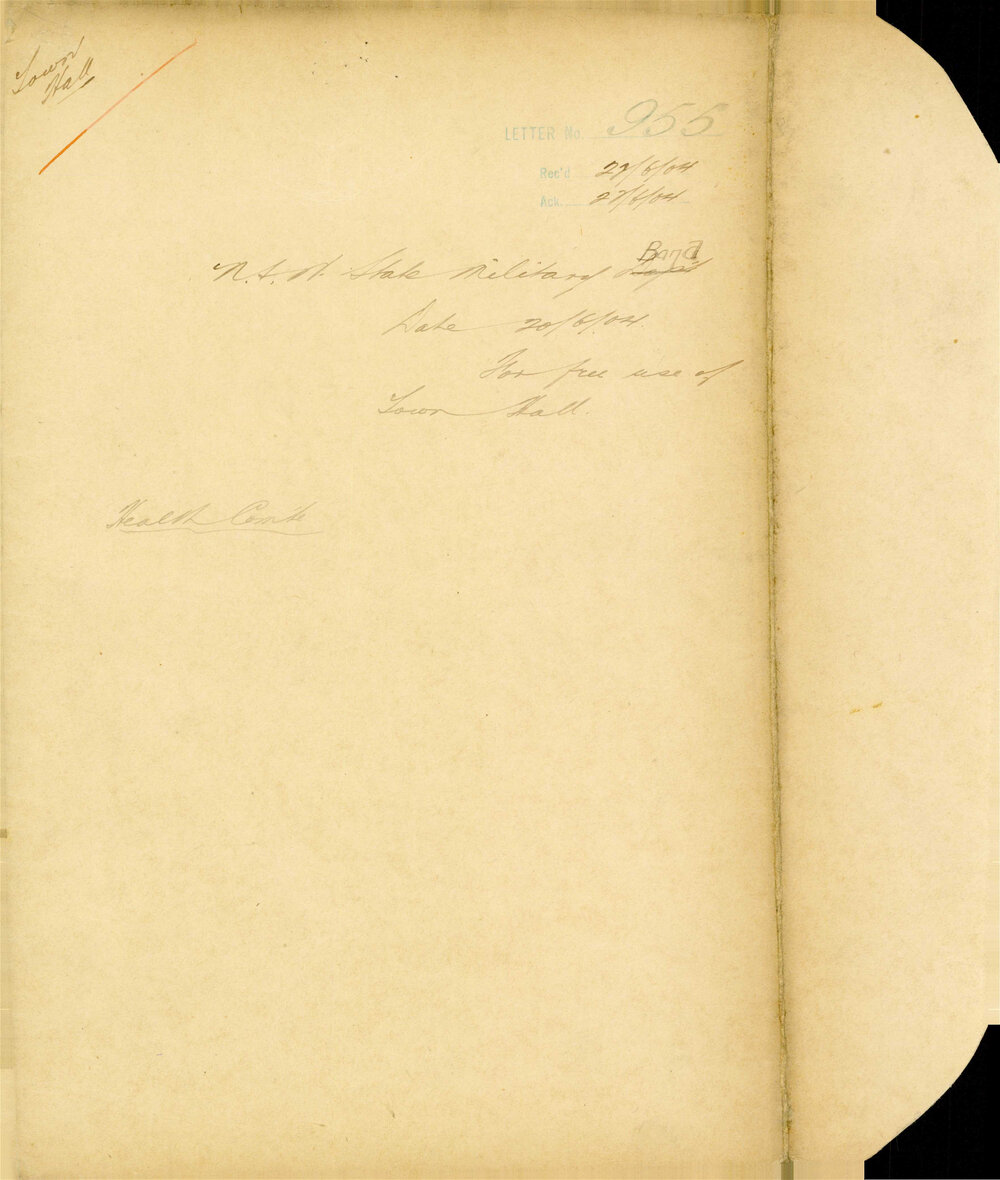 Town
Hall
LETTER No. 955
Rec'd 22/6/04
Ack. 27/6/04
Band
N.S.W. State Military
Date 20/6/04.
For free use of
Town Hall.
Health Comte